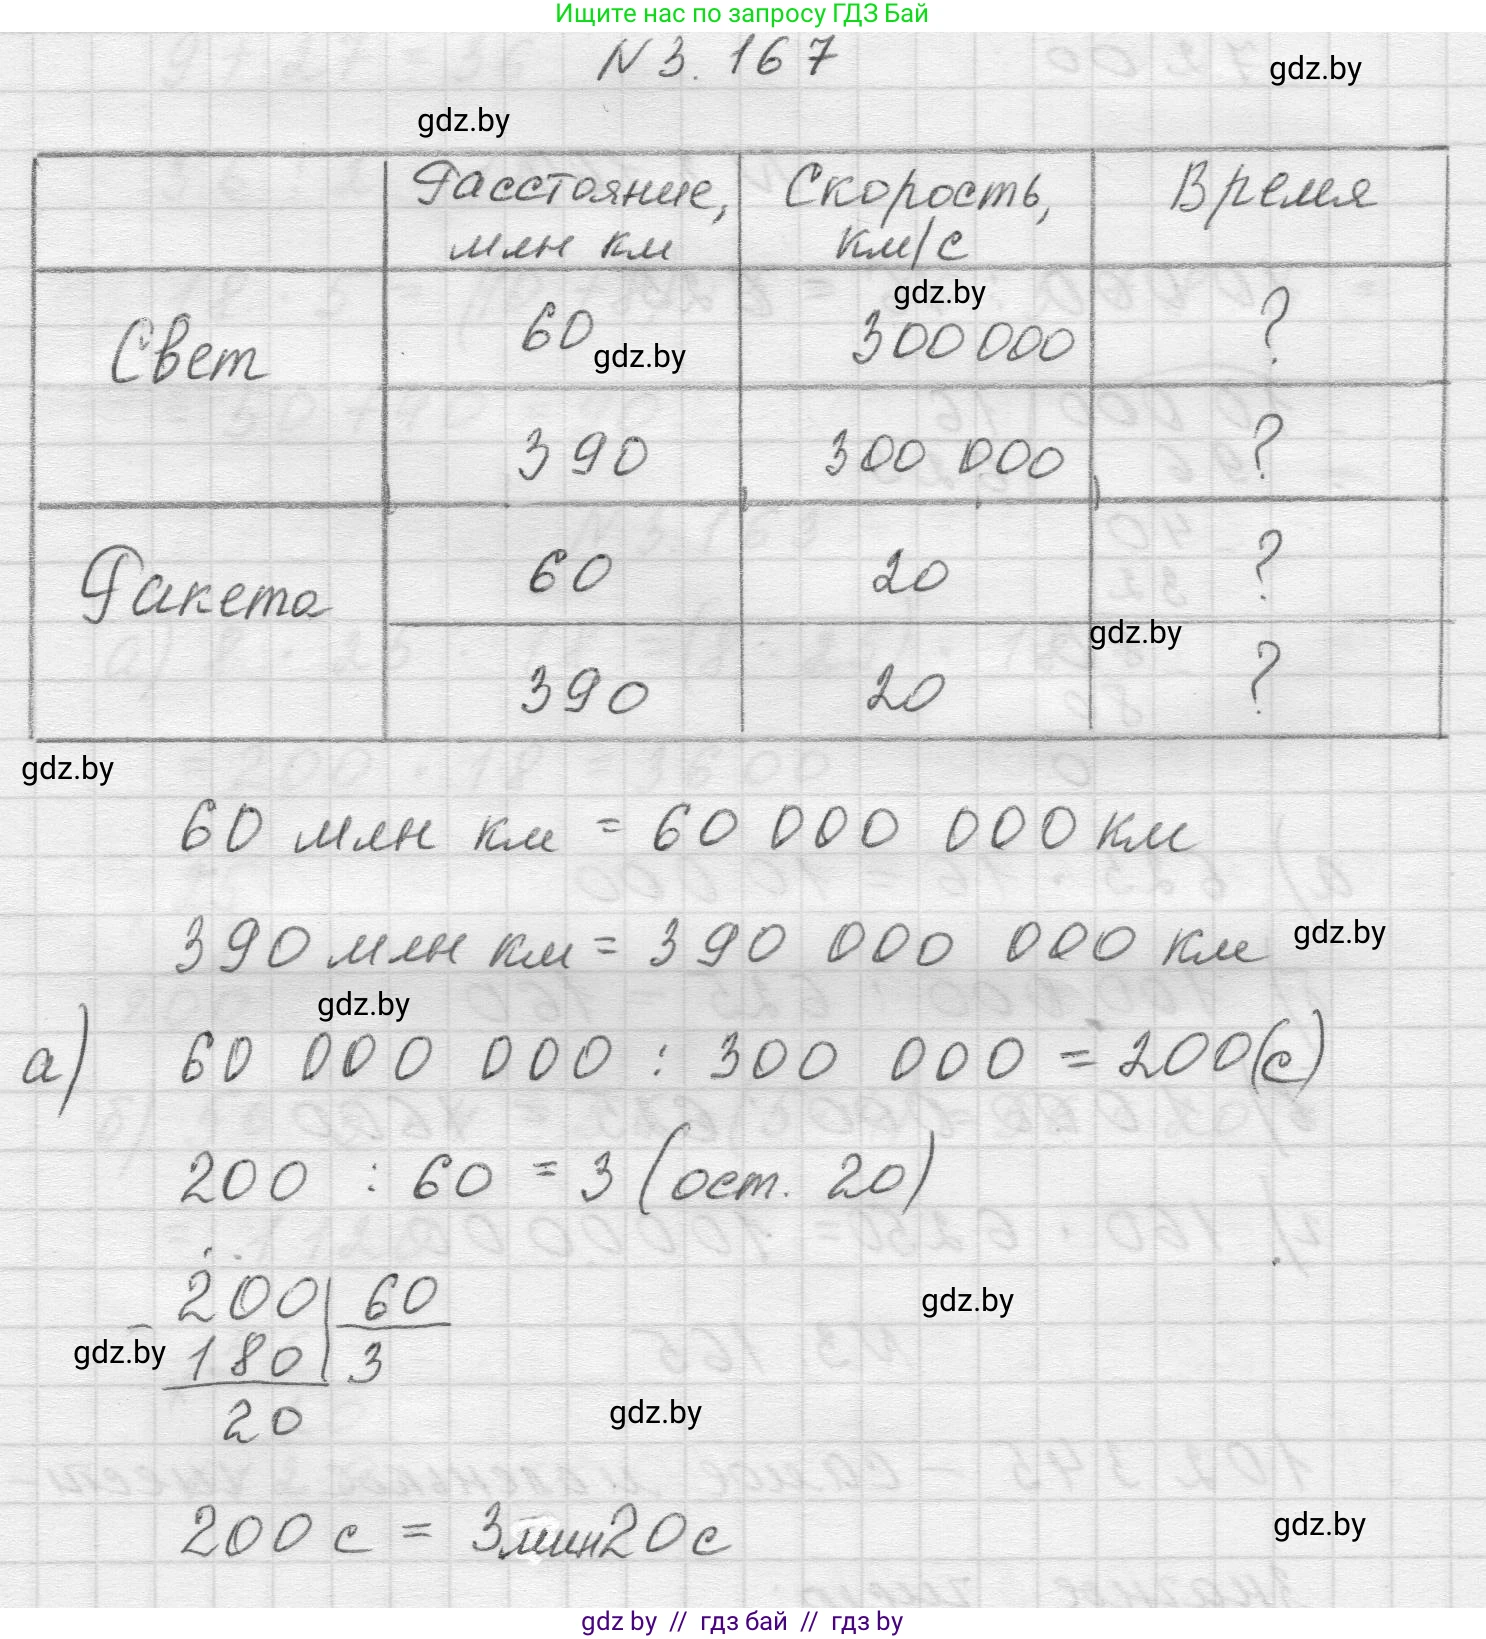 Ищите нас по запросу ГДЗ Бай
N 3. 167
gdz.by
gdz.by
Расстояние, млн км
Скорость, км/с
Время
gdz.by
Свет
60
300 000
?
gdz.by
390
300 000
?
Ракета
60
20
?
gdz.by
390
20
?
gdz.by
60 млн км = 60 000 000 км
390 млн км = 390 000 000 км
gdz.by
gdz.by
а) 60 000 000 : 300 000 = 200(с)
200 : 60 = 3 (ост. 20)
200 60
gdz.by
- 180 3
gdz.by
20
gdz.by
200 с = 3 мин 20 с
gdz.by
gdz by // гдз бай // гдз by